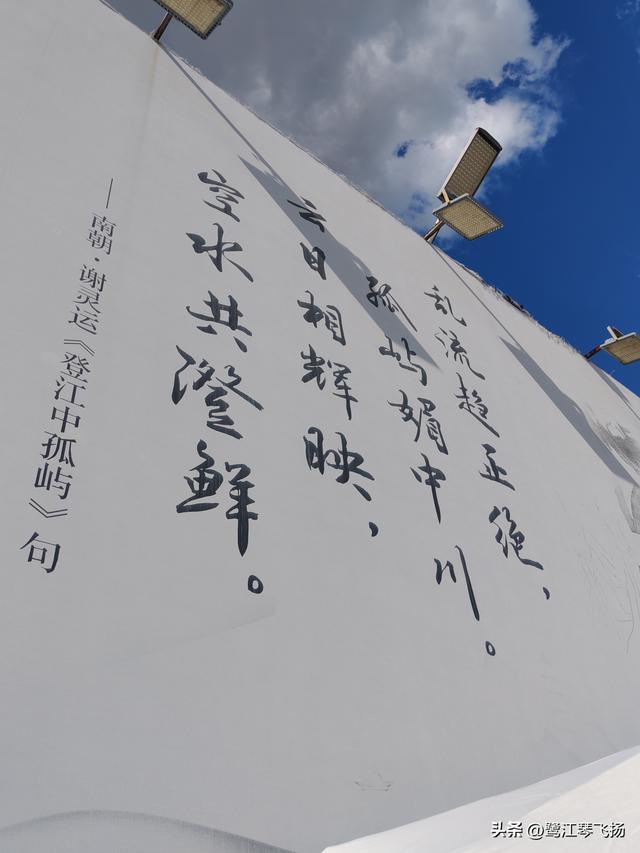 乱流趋正绝，
孤屿媚中川。
云日相辉映，
空水共澄鲜。
——南朝·谢灵运《登江中孤屿》句
头条 @鹭江琴飞扬